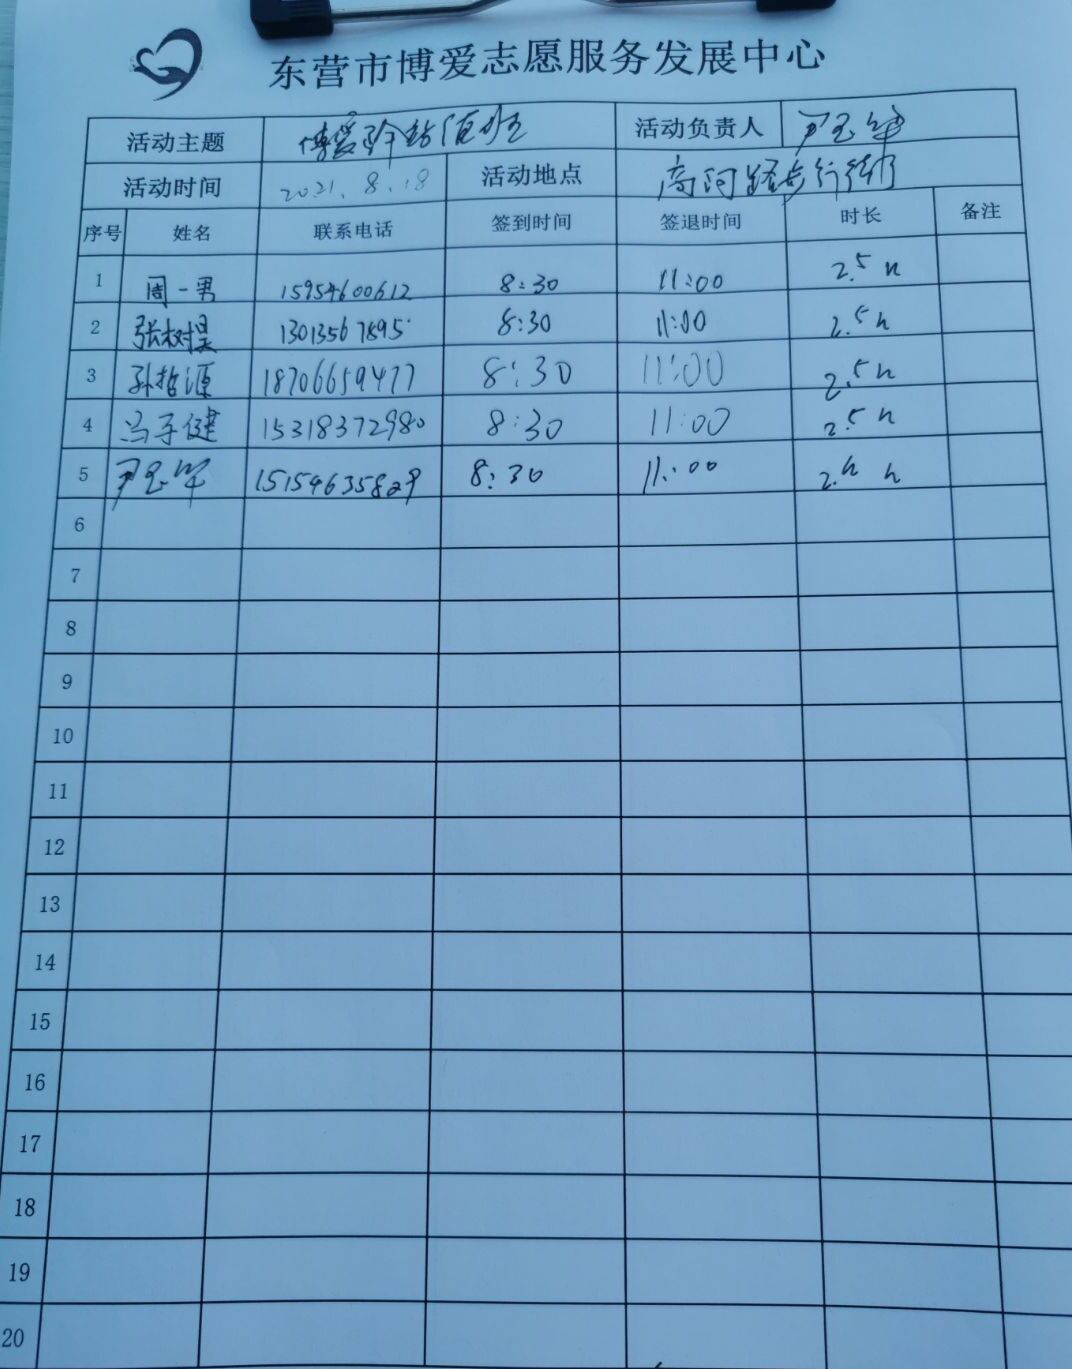 东营市博爱志愿服务发展中心
活动主题 博爱驿站值班 活动负责人 尹玉华
活动时间 2021.8.18 活动地点 步行街
序号 姓名 联系电话 签到时间 签退时间 时长 备注
1 周一男 15954600612 8:30 11:00 2.5h
2 张树昊 13013567895 8:30 11:00 2.5h
3 孙哲源 18706659477 8:30 11:00 2.5h
4 冯子健 15318372980 8:30 11:00 2.5h
5 尹玉华 15154635829 8:30 11:00 h
6
7
8
9
10
11
12
13
14
15
16
17
18
19
20